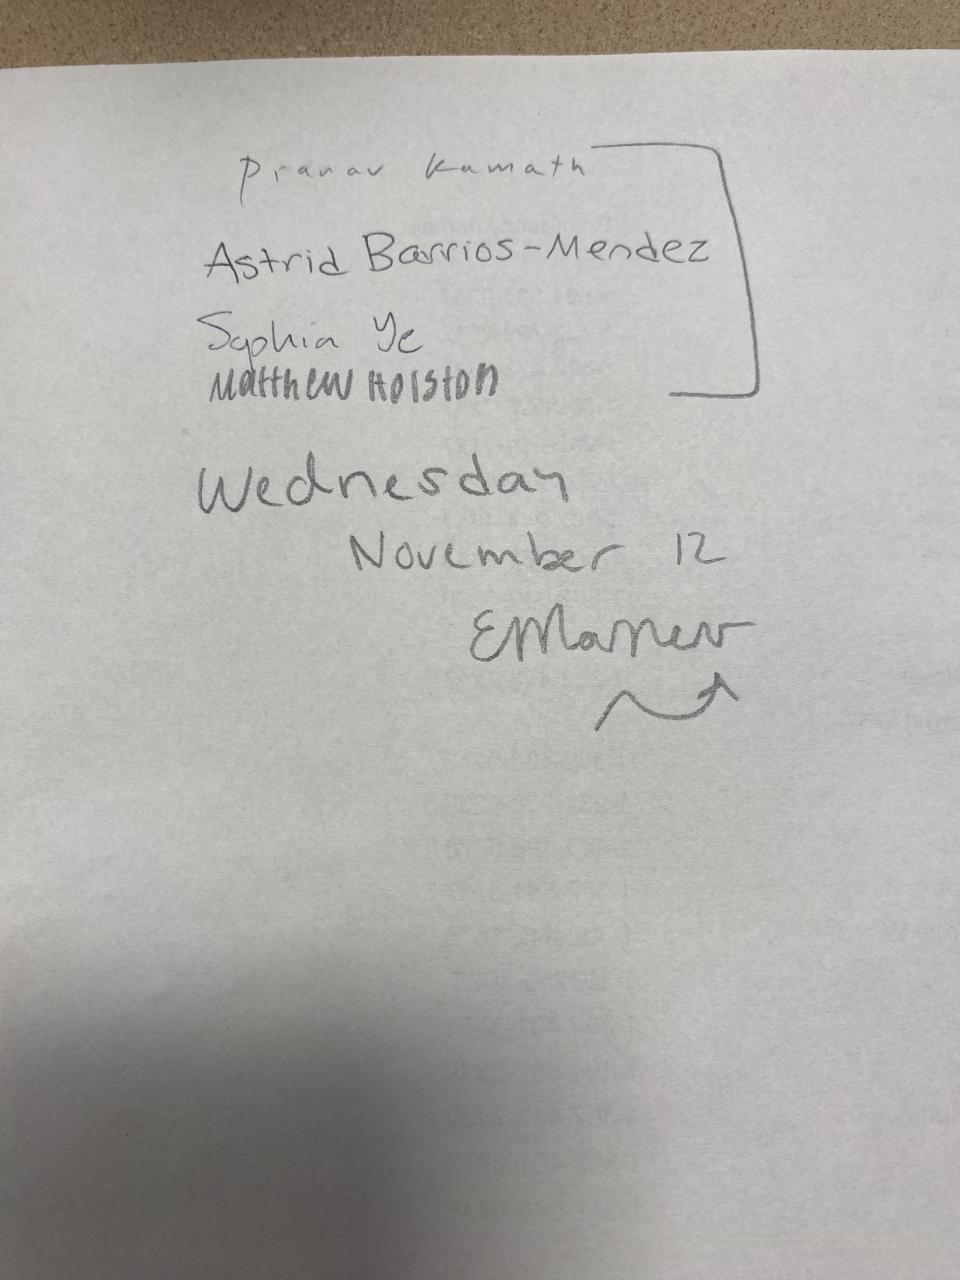 Pranav Kamath
Astrid Barrios-Mendez
Sophia Ye
Matthew Holston
Wednesday
November 12